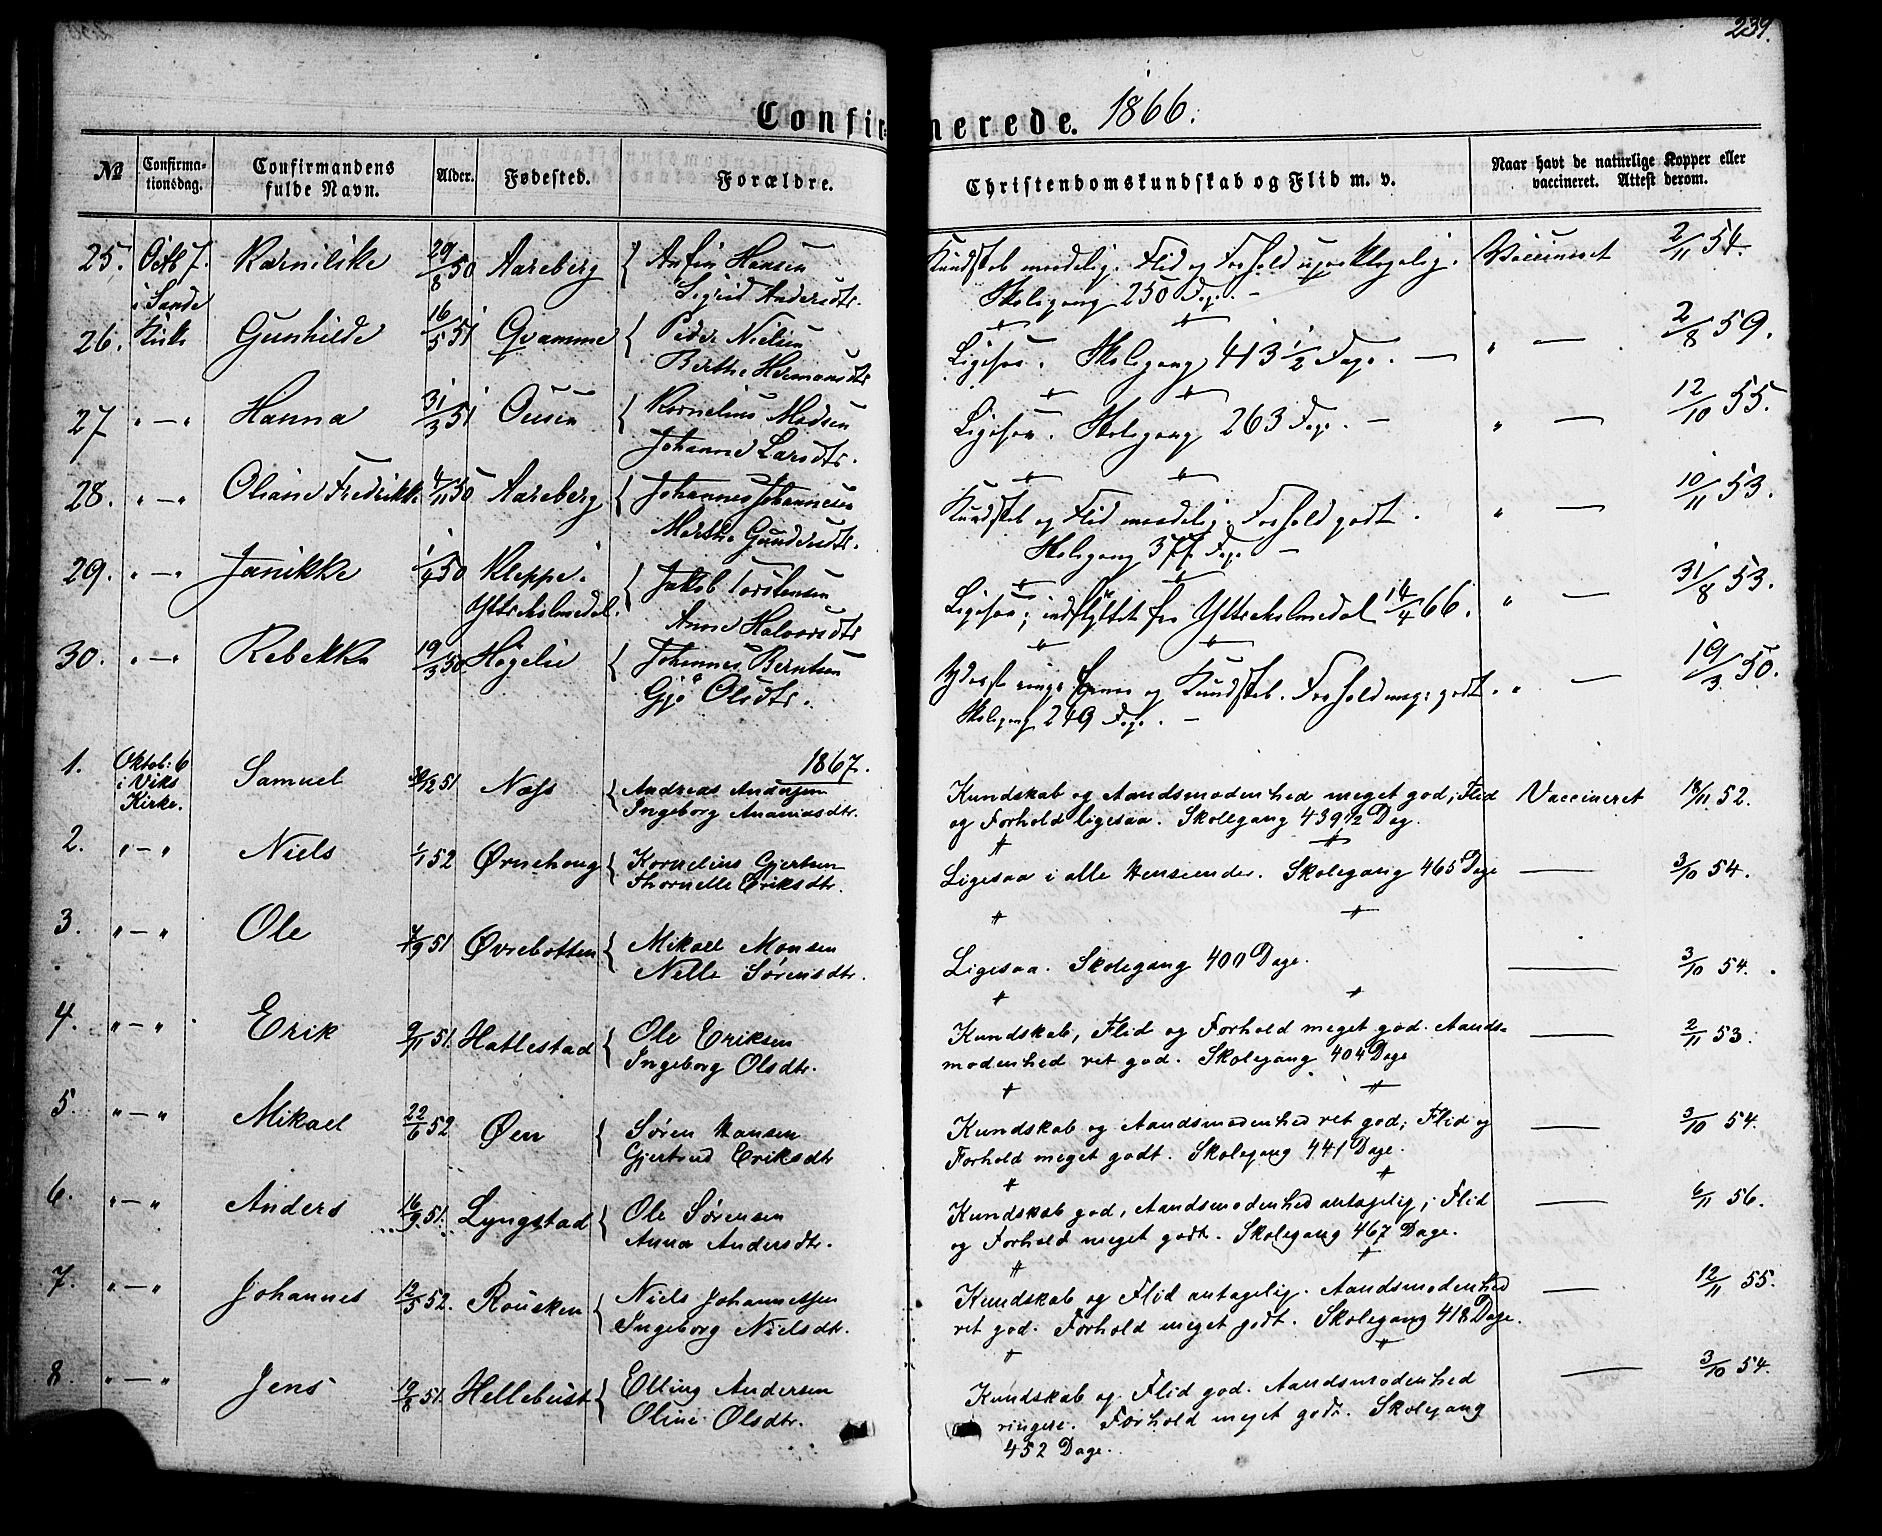 239.
Confirmerede. 1866.
№ Confirma-tionsdag. Confirmandens fulde Navn. Alder. Fødested. Forældre. Christendomskundskab og Flid m. v. Naar havt de naturlige Kopper eller vaccineret. Attest derom.
25. Octb 7. Karnilske 29/8 50 Aareberg { Anfin Hansen Kundskab maadelig. Flid og Forhold upaaklagelig. Vaccineret 2/11 54.
i Sande Sigrid Andersdtr. Skolegang 250 Dage. —
26. Kirke Gunhilde 16/5 51 Qvamme { Peder Nielsen Ligesaa. Skolegang 413 1/2 Dage. — " — 2/8 59.
Berthe Hermansdtr
27 " — " Hanna 31/3 51 Ousen { Kornelius Madsen Ligesaa. Skolegang 263 Dage. — " — 12/10 55.
Johanne Larsdtr.
28. " — " Oliane Fredrikke 4/11 50 Aareberg { Johannes Johannesen Kundskab og Flid maadelig. Forhold godt. " — 10/11 53.
Marthe Gundersdtr. Skolegang 377 Dage —
29. " — " Janikke 1/4 50 Kleppe i { Jakob Torstensen Ligesaa; indflyttet fra Yttreholmedal 14/4 66. " — 31/8 53.
Yttreholmedal. Anne Halvorsdtr
30. " — " Rebekka 19/3 50 Høgelie { Johannes Berntsen Yderst ringe Evner og Kundskab. Forhold meget godt. " — 19/3 50.
Gjø Olsdtr. Skolegang 249 Dage. —
1867.
1. Oktob: 6 i Viks Kirke. Samuel 30/12 51 Næss { Andreas Andersen Kundskab og Aandsmodenhed meget god; Flid Vaccineret 18/11 52.
Ingeborg Ananiasdtr. og Forhold ligesaa. Skolegang 439 1/2 Dag.
2. " — " Niels 1/1 52 Ørnehoug { Kornelius Gjertsen Ligesaa i alle Henseender. Skolegang 465 Dage — 3/10 54.
Thornelle Eriksdtr.
3. " — " Ole 7/9 51 Øvrebotten { Mikael Monsen Ligesaa. Skolegang 400 Dage. — 3/10 54.
Nille Sørensdtr.
4. " — " Erik 9/11 51. Hatlestad { Ole Eriksen Kundskab, Flid og Forhold meget god. Aands- — 2/11 53.
Ingeborg Olsdtr. modenhed ret god. Skolegang 404 Dage
5. " — " Mikael 22/6 52 Øen { Søren Hansen Kundskab og Aandsmodenhed ret god; Flid og — 3/10 54.
Gjertrud Eriksdtr Forhold meget godt. Skolegang 441 Dage.
6. " — " Anders 16/9 51. Lyngstad { Ole Sørensen Kundskab god, Aandsmodenhed antagelig; Flid — 6/11 56.
Anna Andersdtr. og Forhold meget godt. Skolegang 467 Dage.
7. " — " Johannes 12/5 52. Rousken { Niels Johannessen Kundskab og Flid antagelig. Aandsmodenhed — 12/11 55.
Ingeborg Nielsdtr. ret god. Forhold meget godt. Skolegang 418 Dage.
8. " — " Jens 19/8 51. Hellebust { Elling Andersen Kundskab og Flid god. Aandsmodenhed — 3/10 54.
Oline Olsdtr. ringere. Forhold meget godt. Skolegang
452 Dage.